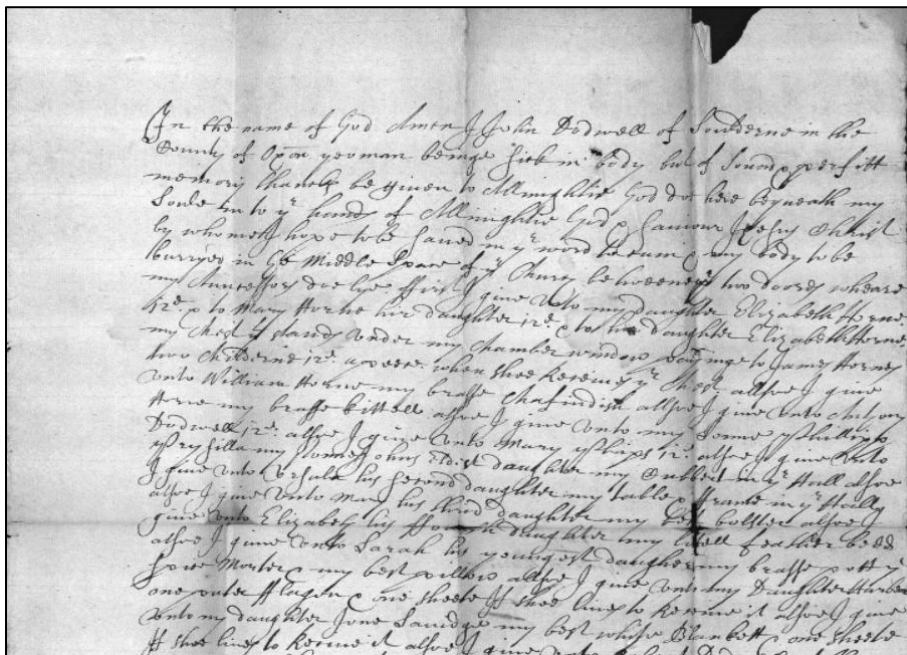 In the name of God Amen I John Dodwell of Soulderne in the
County of Oxon yeoman beinge sick in body but of sound & perfitt
memory thanks be given to Allmightie God doe here bequeath my
Soule in to ye hands of Allmightie God & saviour Jesus Christ
by whome I hope to be saved in ye world to cum & my body to be
burryed in the Middle Space of ye Church betweene ye two doores wheare
my Auncestors doe lye first I give unto my daughter Elizabeth Horne
12d & to Mary Horne her daughter 12d & to her daughter Elizabeth Horne
my Chest yt stands under my Chamber window to James Hornes
two Childerne 12d a peece when shee receives ye Chest allsoe I give
unto William Horne my brasse Chafindish allsoe I give unto
Horne my brasse kittell allsoe I give unto my Sonne Phillip
Dodwell 12d allsoe I give unto Mary 12d allsoe I give unto
my sonne Johns Eldest daughter my Cubbert in ye Hall allsoe
I give unto Ursula his second daughter my table & frame in ye Hall
allsoe I give unto Mary his third daughter my best bolster allsoe I
give unto Elizabeth his daughter my feather bedd
allsoe I give unto Sarah his youngest daughter my brasse pott ye
Morter & my best pillow allsoe I give unto my Daughter
one puter fflagon & one sheete If shee lives to receive it allsoe I give
unto my daughter Jone Savidge my best white Blankett & one sheete
If shee lives to receive it allsoe I give unto Dodwell